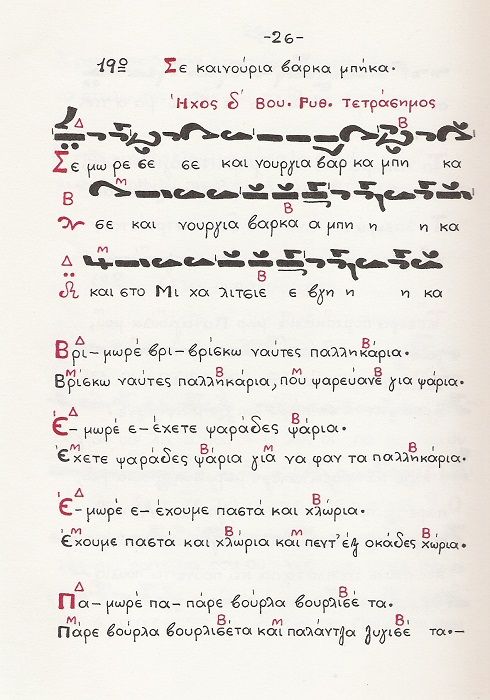 -26-
19ο Σε καινούρια βάρκα μπήκα.
Ἦχος δ' Βου. Ρυθ. τετράσημος
Δ Β
Σε μω ρε σε σε και νουργια βαρ κα μπη κα
Β Μ Β
σε και νουργια βαρκα α μπη η η κα
Δ Μ Β
και στο Μι χα λιτσιε ε βγη η η κα
Δ Β
Βρί-μωρέ βρι-βρίσκω ναύτες παλληκάρια.
Μ Β Μ Β
Βρίσκω ναύτες παλληκάρια, που ψαρεύανε για ψάρια.
Δ Β
Έ-μωρέ ε-έχετε ψαράδες ψάρια.
Μ Β Μ Β
Έχετε ψαράδες ψάρια για να φαν τα παλληκάρια.
Δ Β
Έ-μωρέ ε-έχουμε παστά και χλώρια.
Μ Β Μ Β
Έχουμε παστά και χλώρια και πεντ' έξ οκάδες χώρια.
Δ Β
Πα-μωρέ πα-πάρε βούρλα βουρλισέ τα.
Μ Β Μ Β
Πάρε βούρλα βουρλισέτα και παλάντζα ζυγισέ τα.-